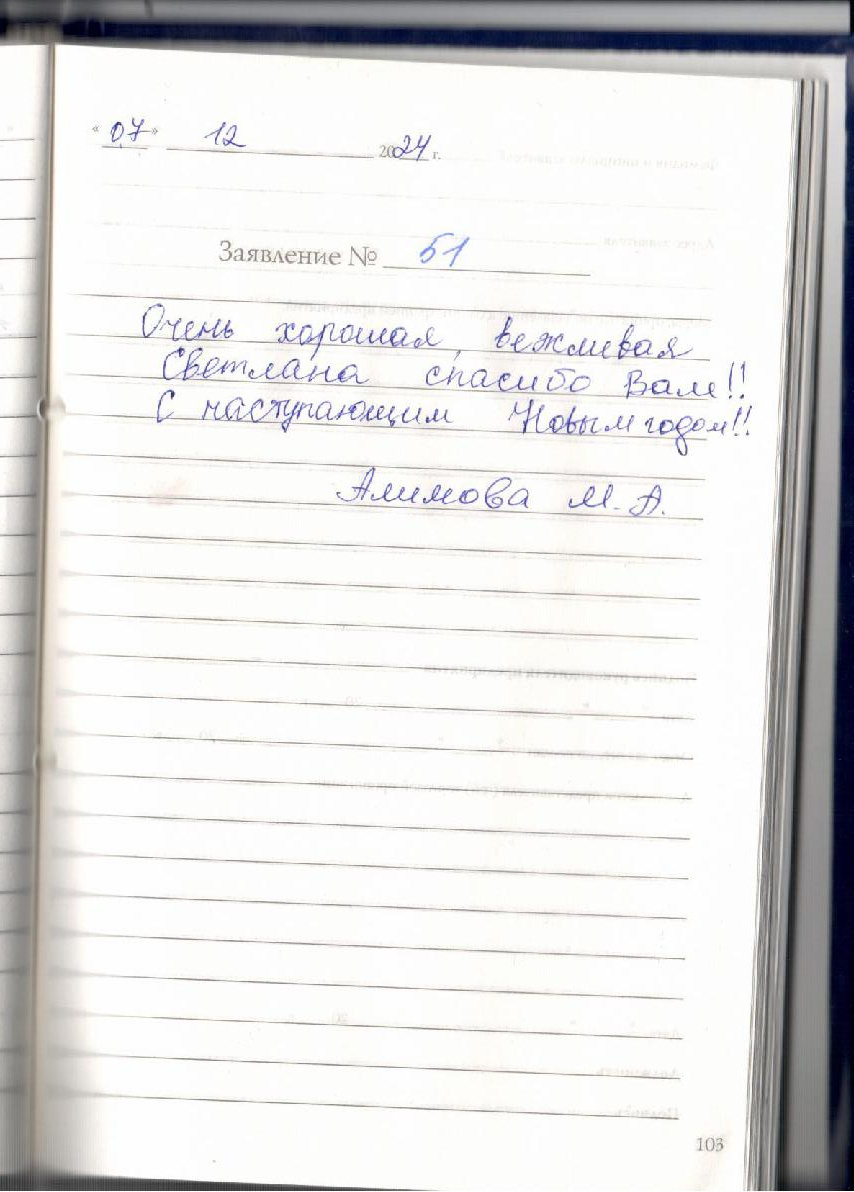 «07» 12 2024 г.
Заявление № 51
Очень хорошая, вежливая
Светлана спасибо Вам!!
С наступающим Новым годом!!
Алимова М. А.
103